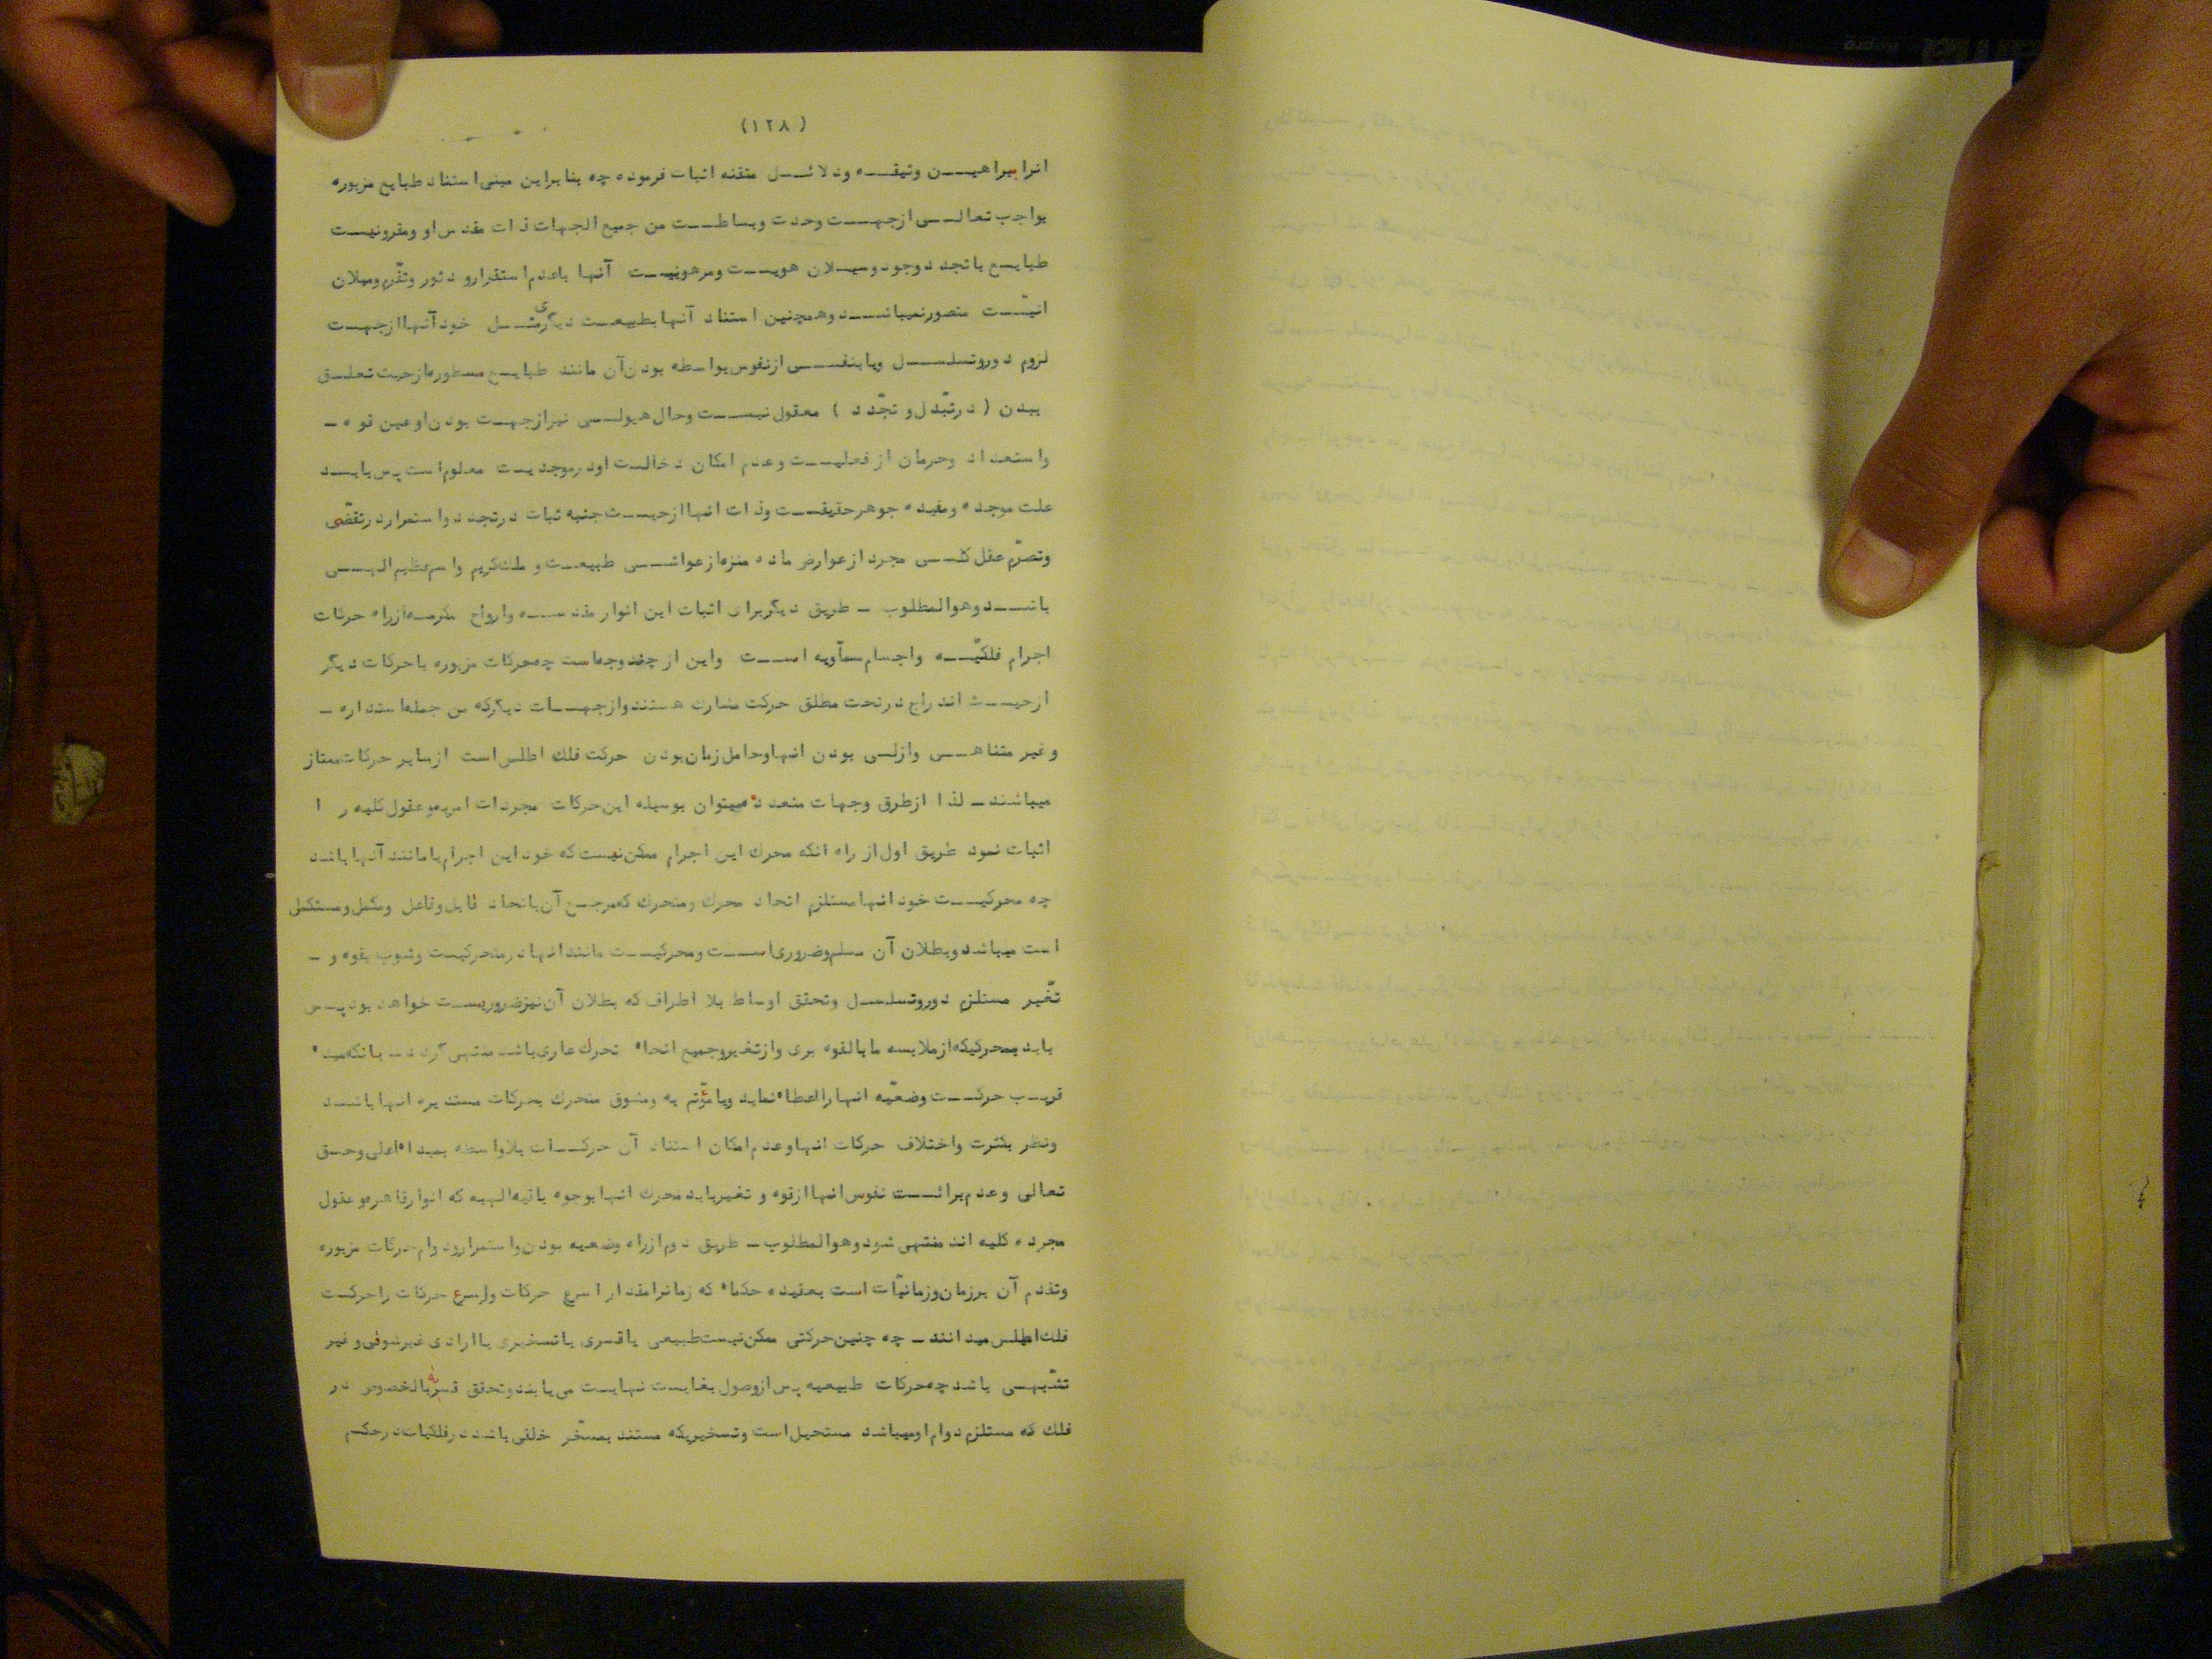 (۱۲۸)
انرا ببراهین وثیقه ودلائل متقنه اثبات فرموده چه بنابراین مبنی استناد طبایع مزبوره
بواجب تعالی ازجهت وحدت وبساطت من جمیع الجهات ذات مقدس او ومقرونیت
طبایع باتجدد وجود وسیلان هویت ومرهونیت آنها باعدم استقرار و دثور وتقرم وسیلان
انیّت متصور نمیباشد وهمچنین استناد آنها بطبیعت دیگری مثل خود آنها ازجهت
لزوم دور وتسلسل ویا بنفس ازنفوس بواسطه بودن آن مانند طبایع مسطوره ازحیث تعلق
ببدن (درتبّدل و تجّدد) معقول نیست وحال هیولی نیز ازجهت بودن او عین قوه –
واستعداد وحرمان از فعلیت وعدم امکان دخالت اودر موجدیت معلوم است پس باید
علت موجده ومفیده جوهر حقیقت وذات انها ازحیث جنبه ثبات در تجدد واستمرار در تقضّی
وتصرّم عقل کلی مجرد از عوارض ماده منزه از غواشی طبیعت و ملک کریم واسم عظیم الهی
باشد وهوالمطلوب – طریق دیگر برای اثبات این انوار مقدسه وارواح مکرمه ازراه حرکات
اجرام فلکیّه واجسام سمآویه است واین از چند وجه است چه حرکات مزبوره باحرکات دیگر
ازحیث اندراج درتحت مطلق حرکت مشارک هستند وازجهات دیگر که من جمله استداره –
وغیر متناهی وازلی بودن انها وحامل زمان بودن حرکت فلك اطلس است ازسایر حرکات ممتاز
میباشند – لذا ازطرق وجهات متعدده میتوان بوسیله این حرکات مجردات امریه وعقول کلیه را
اثبات نمود طریق اول از راه انکه محرك این اجرام ممکن نیست که خود این اجرام یا مانند آنها باشد
چه محرکیت خود انها مستلزم اتحاد محرك ومتحرك که مرجع آن باتحاد قابل وفاعل ومکمل ومستکمل
است میباشد وبطلان آن مسلم وضروری است ومحرکیت مانند انها در متحرکیت وشوب بقوه و –
تغّیر مستلزم دور وتسلسل وتحقق اوساط بلا اطراف که بطلان آن نیز ضروریست خواهد بود پس
باید بمحرکیکه ازملابسه ما بالقوه بری وازتغیر وجمیع انحاء تحرك عاری باشد منتهی گردد – یا نکه مبدء
قریب حرکت وضعیّه انها را اعطاء نماید ویا مؤّتم به ومشوق متحرك بحرکات مستدیره انها باشد
ونظر بکثرت واختلاف حرکات انها وعدم امکان استناد آن حرکات بلاواسطه بمبداء اعلی وحق
تعالی وعدم برائت نفوس انها ازقوه و تغیر باید محرك انها بوجوه باقیه الهیه که انوار قاهره وعقول
مجرده کلیه اند منتهی شود وهوالمطلوب – طریق دوم ازراه وضعیه بودن واستمرار ودوام حرکات مزبوره
وتقدم آن برزمان وزمانیّات است بعقیده حکماء که زمانرا مقدار اسرع حرکات واسرع حرکات را حرکت
فلك اطلس میدانند – چه چنین حرکتی ممکن نیست طبیعی یا قسری یا تسخیری یا ارادی غیرشوقی وغیر
تشّبهی باشد چه حرکات طبیعیه پس ازوصول بغایت نهایت می یابند وتحقق قسر بالخصوص در
فلك که مستلزم دوام اومیباشد مستحیل است وتسخیریکه مستند بمسخّر خلفی باشد درفلکیات درحکم